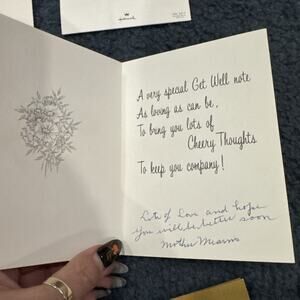 Hallmark
A very special Get Well note
As loving as can be,
To bring you lots of
Cheery Thoughts
To keep you company!
Lots of Love and hope
you will be better soon
Mother Mearns